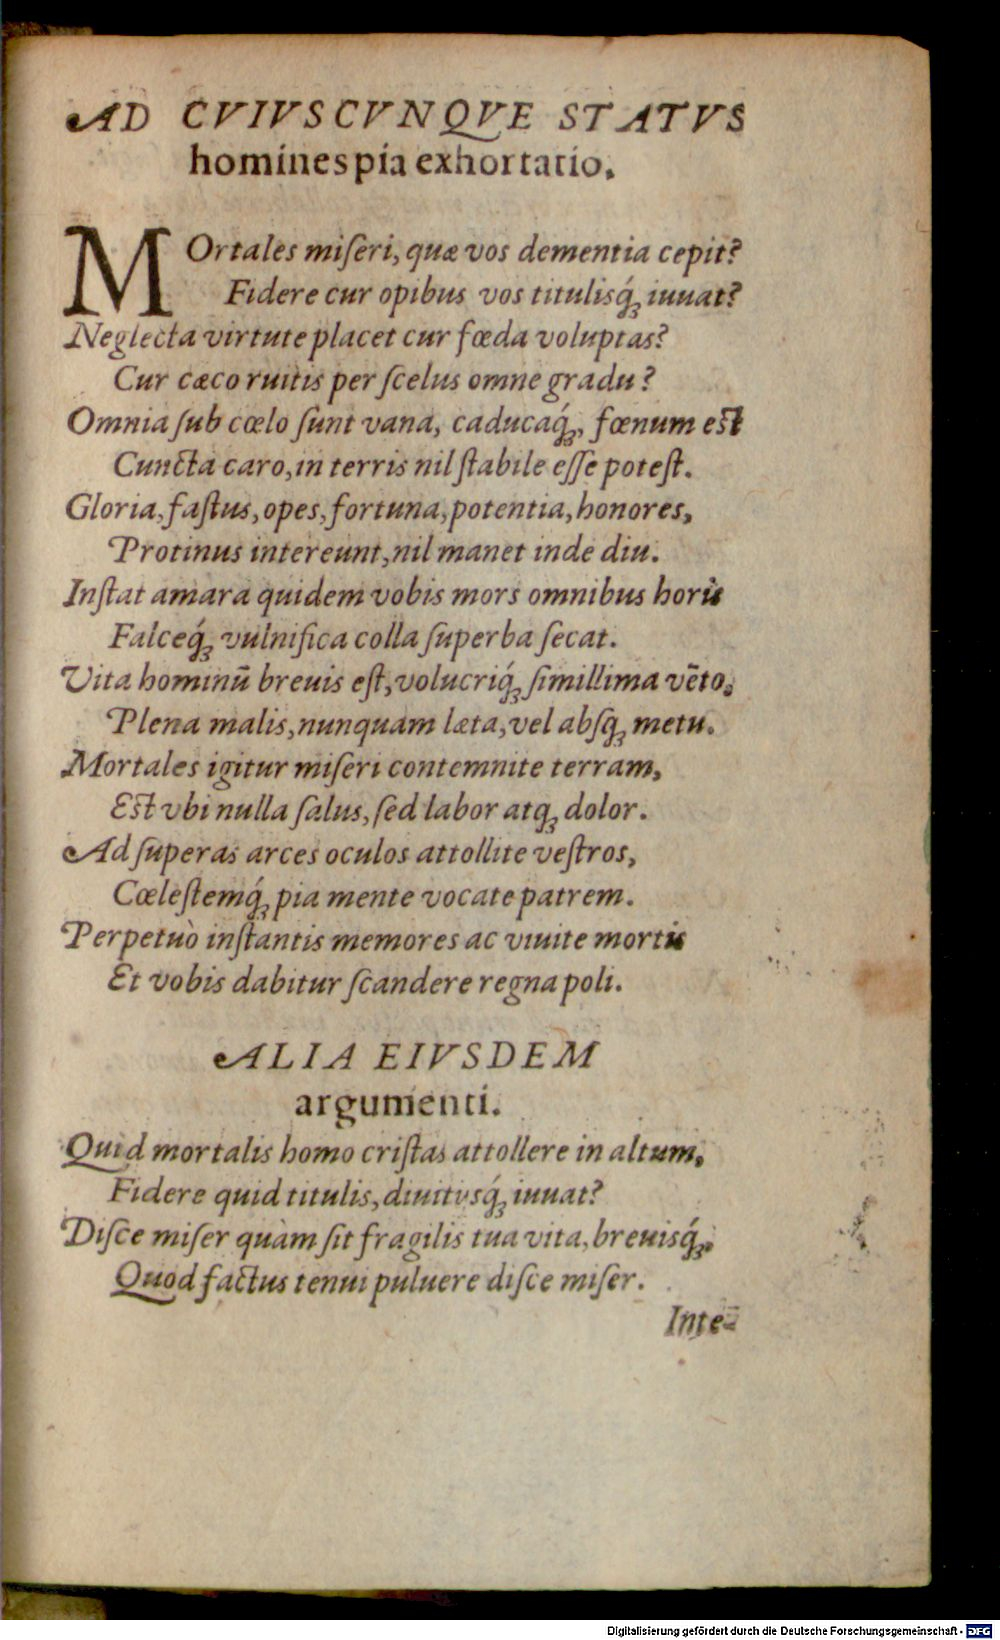 AD CVIVSCVNQVE STATVS
homines pia exhortatio.
MOrtales miſeri, quæ vos dementia cepit?
Fidere cur opibus vos titulisq́; iuuat?
Neglecta virtute placet cur fœda voluptas?
Cur cæco ruitis per ſcelus omne gradu?
Omnia ſub cœlo ſunt vana, caducaq́;, fœnum eſt
Cuncta caro, in terris nil ſtabile eſſe poteſt.
Gloria, faſtus, opes, fortuna, potentia, honores,
Protinus intereunt, nil manet inde diu.
Inſtat amara quidem vobis mors omnibus horis
Falceq́; vulnifica colla ſuperba ſecat.
Vita hominū breuis eſt, volucriq́; ſimillima vēto,
Plena malis, nunquam læta, vel absq; metu.
Mortales igitur miſeri contemnite terram,
Eſt vbi nulla ſalus, ſed labor atq; dolor.
Ad ſuperas arces oculos attollite veſtros,
Cœleſtemq́; pia mente vocate patrem.
Perpetuò inſtantis memores ac viuite mortis
Et vobis dabitur ſcandere regna poli.
ALIA EIVSDEM
argumenti.
Quid mortalis homo criſtas attollere in altum,
Fidere quid titulis, diuitysq́; iuuat?
Diſce miſer quàm ſit fragilis tua vita, breuisq́;,
Quod factus tenui puluere diſce miſer.
Inte-
Digitalisierung gefördert durch die Deutsche Forschungsgemeinschaft - DFG